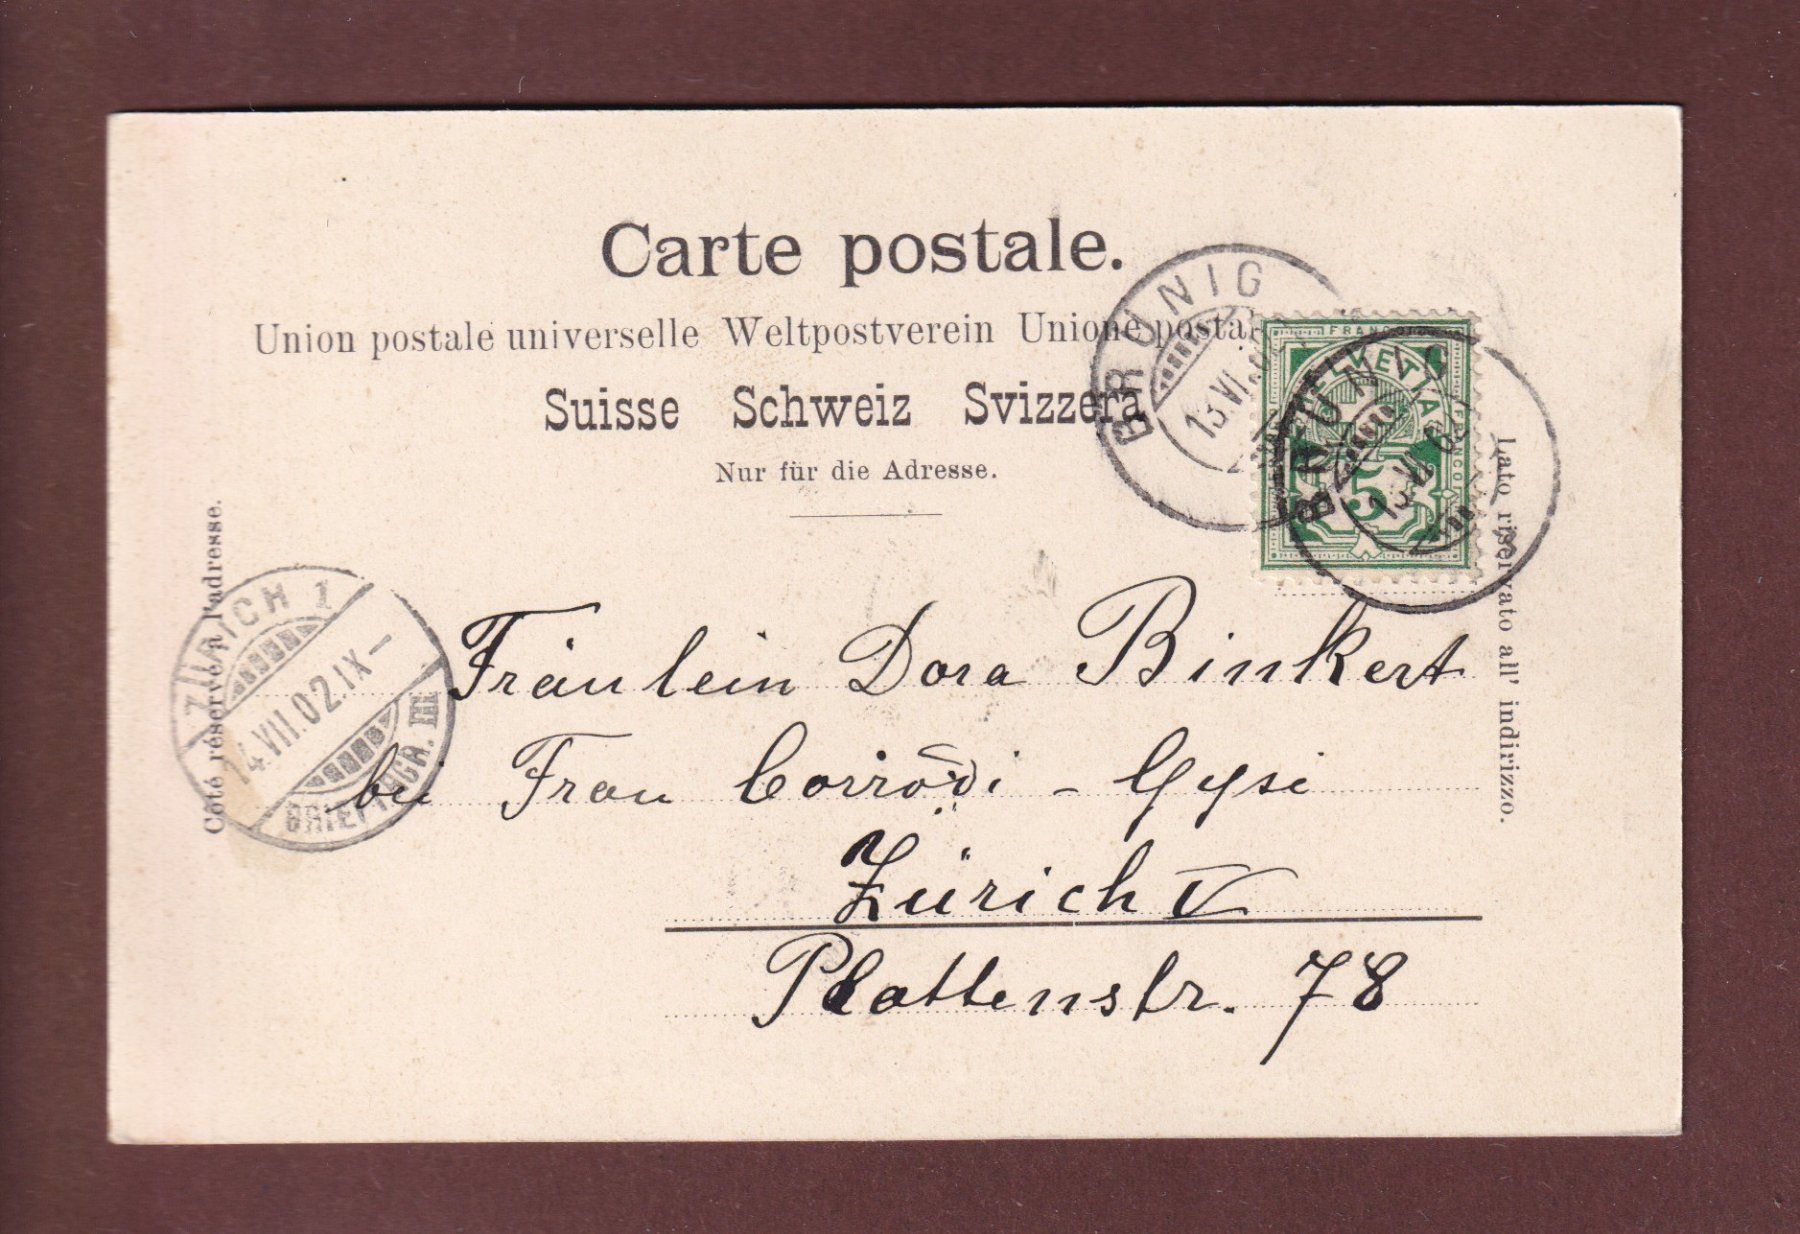 Carte postale.
Union postale universelle Weltpostverein Unione postal
Suisse Schweiz Svizzera
Nur für die Adresse.
Côté réservé à l'adresse.
Lato riservato all' indirizzo.
BRÜNIG
13.VI
FRANCO
HELVETIA
FRANCO
5
BRÜNIG
13.VI.02
ZÜRICH 1
14.VII.02.IX–
BRIEFTRGCA. III
Fräulein Dora Binkert
bei Frau Corrodi - Gysi
Zürich V
Plattenstr. 78